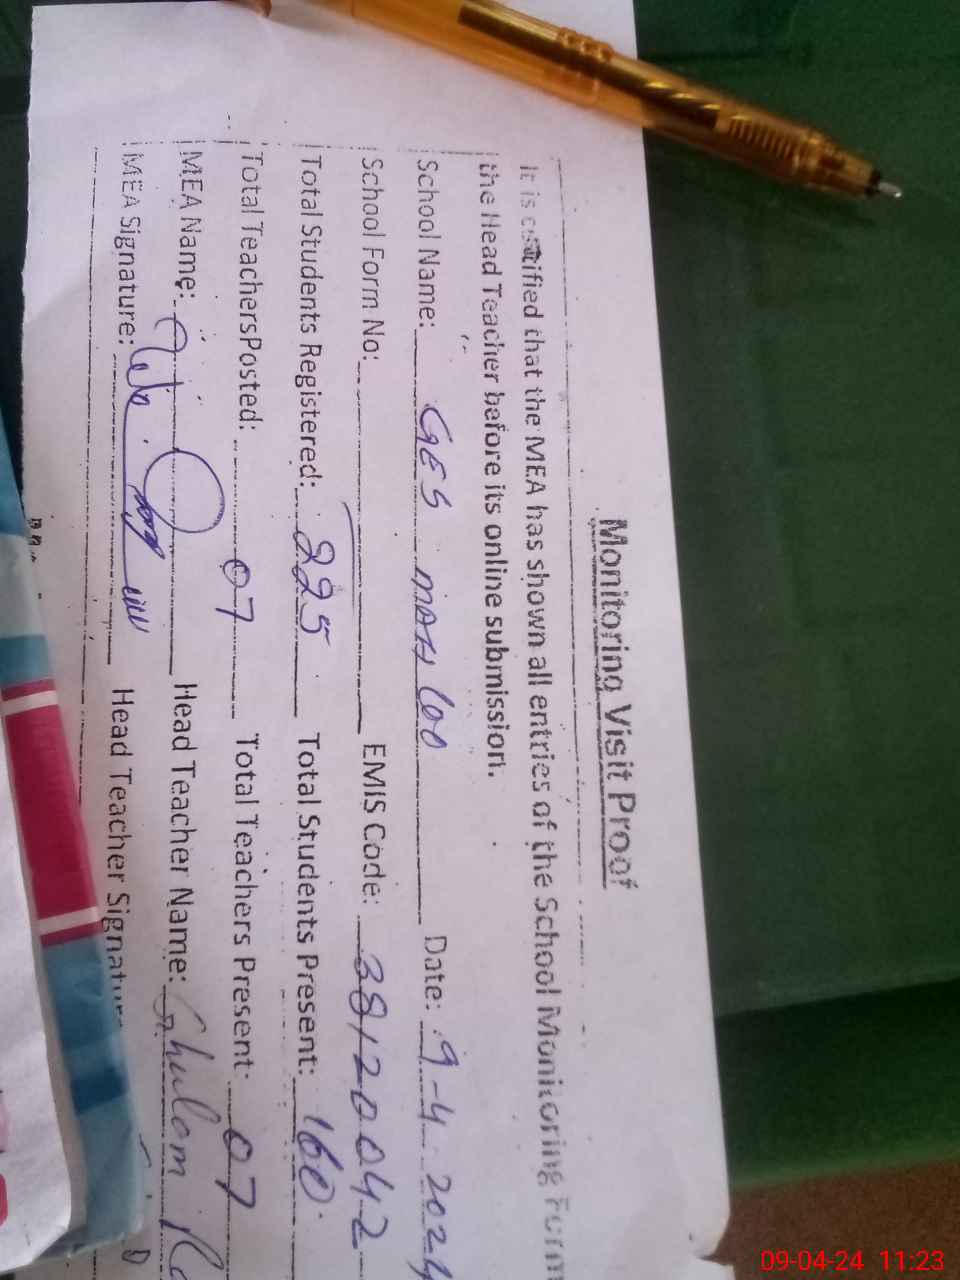 Monitoring Visit Proof
It is certified that the MEA has shown all entries of the School Monitoring Form
the Head Teacher before its online submission.
School Name: GES Date: 9-4-2024
School Form No: EMIS Code: 38120042
Total Students Registered: 225 Total Students Present: 160
Total TeachersPosted: 07 Total Teachers Present: 07
MEA Name: Head Teacher Name: Ghulam
MEA Signature: Head Teacher Signatur
09-04-24 11:23